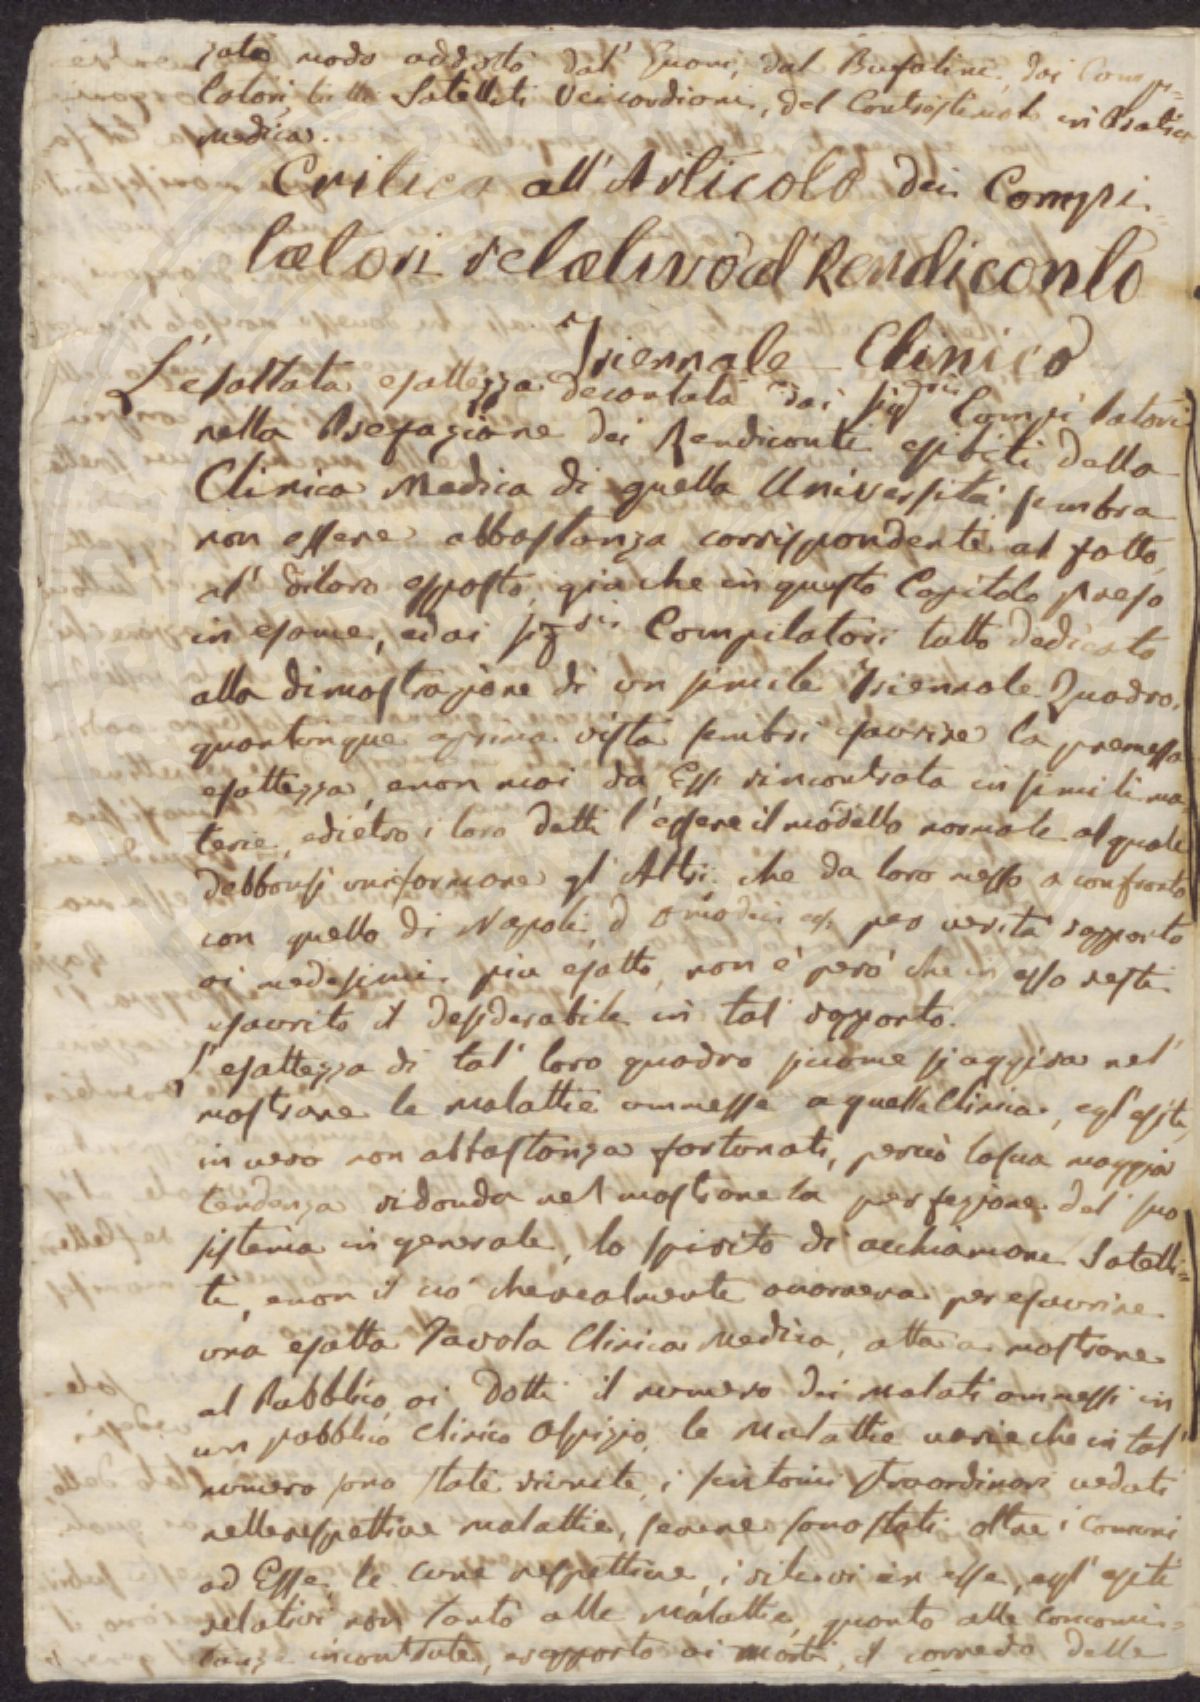 modo addotto dal' Guani, dal Bufalini, dai Compi=
latori, Satelliti Vicordioni, del Controstimolo in Pratica
Medica.
Critica all'Articolo dei Compi=
latori relativo al Rendiconto
Triennale Clinico
L'esaltata esattezza decantata dai Sigri Compilatori
nella Prefazione dei Rendiconti esibiti della
Clinica Medica di quella Università, sembra
non essere abbastanza corrispondente al fatto,
al' di loro esposto, giache in questo Capitolo preso
in esame, e dai Sigri Compilatori tutto dedicato
alla dimostrazione di un simile Triennale Quadro,
quantunque a prima vista sembri esaurire la premessa
esattezza, e non mai da Essi rincontrata in simili ma
terie, e dietro i loro detti l'essere il modello normale al quale
debbonsi uniformare gl' Altri, che da loro messo a confronto
con quello di Napoli, d' Omodei per verità rapporto
ai medesimi più esatto, non è però che in esso resti
esaurito il desiderabile in tal rapporto.
L'esattezza di tal' loro quadro siccome si aggira nel'
mostrare le Malattie ammesse a quella Clinica, egl' esiti,
in vero non abbastanza fortunati, perciò la sua maggior
tendenza ridonda nel mostrare la perfezione del' suo
sistema in generale, lo spirito di acchiamare Satelli=
ti, e non il ciò che realmente per esaurire
una esatta Tavola Clinica Medica, atta a mostrare
al Pubblico, ai Dotti il numero dei Malati ammessi in
un pubblico Clinico Ospizio, le Malattie varie che in tal'
numero sono state riunite, i sintomi straordinari veduti
nelle rispettive Malattie, se ne sono stati oltre i comuni
ad Esse, le cure rispettive, i rilievi in esse, egl' esiti
relativi non tanto alle Malattie, quanto alle concomi=
tanze incontrate, e rapporto ai Morti, il corredo delle